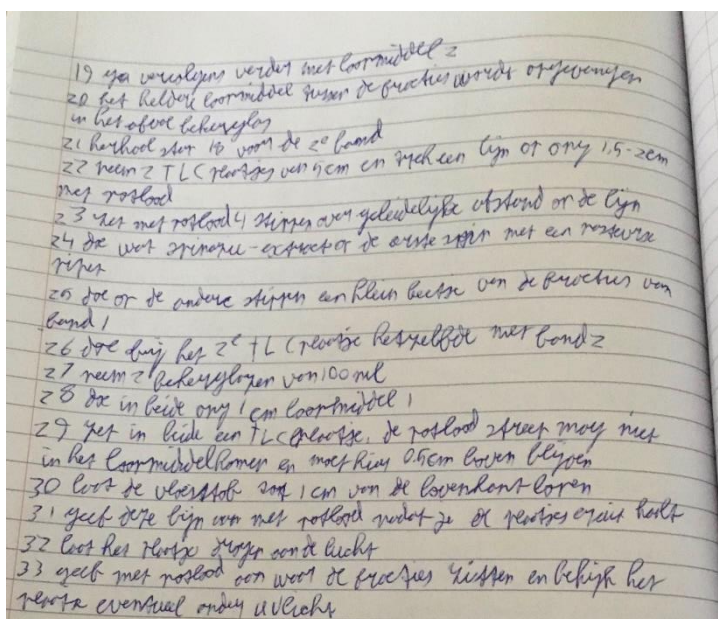 19 ga vervolgens verder met loopmiddel 2
20 het heldere loopmiddel tussen de fracties wordt opgevangen
in het afval bekerglas
21 herhaal stap 18 voor de 2e band
22 neem 2 TLC plaatjes van 5cm en trek een lijn op ong 1,5-2cm
met potlood
23 zet met potlood 4 stippen over geleidelijke afstand op de lijn
24 doe wat spinazie-extract op de eerste stip met een pasteurse
pipet
25 doe op de andere stippen een klein beetje van de fracties van
band 1
26 doe bij het 2e TLC plaatje hetzelfde met band 2
27 neem 2 bekerglazen van 100 ml
28 doe in beide ong 1 cm loopmiddel 1
29 zet in beide een TLC plaatje, de potlood streep mag niet
in het loopmiddel komen en moet hier 0.5cm boven blijven
30 laat de vloeistof tot 1 cm van de bovenkant lopen
31 geef deze lijn aan met potlood nadat je de plaatjes eruit haalt
32 laat het plaatje drogen aan de lucht
33 geef met potlood aan waar de fracties zitten en bekijk het
plaatje eventueel onder uvlicht